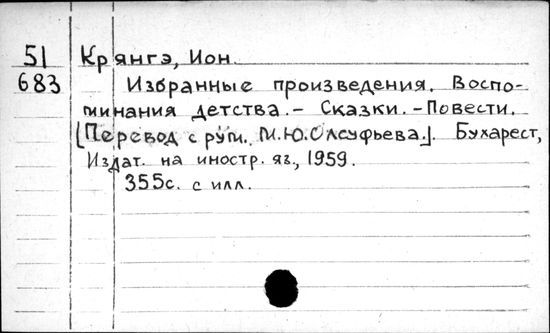 51 Крянгэ, Ион.
683 Избранные произведения. Воспо-
минания детства.- Сказки.-Повести.
[Перевод с рум. М.Ю.Олсуфьева]. Бухарест,
Издат. на иностр. яз., 1959.
355с. с илл.